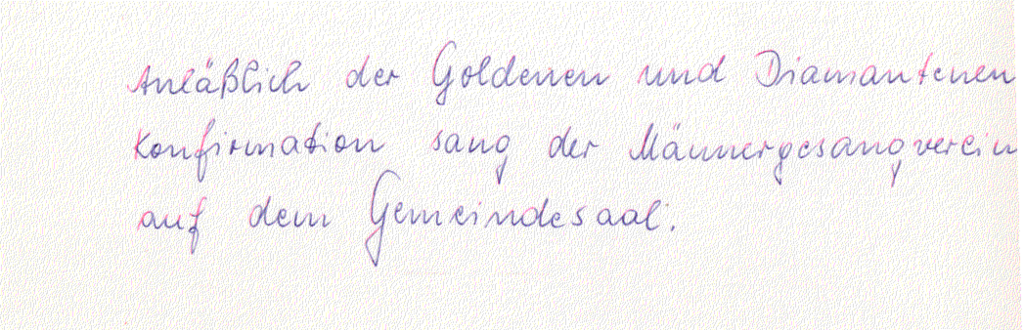 Anläßlich der Goldenen und Diamantenen
Konfirmation sang der Männergesangverein
auf dem Gemeindesaal.